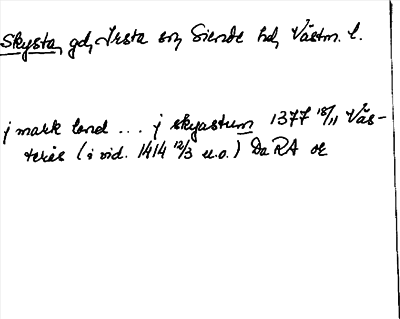 Skysta, gd, Irsta sn, Siende hd, Västm. l.
j mark land ... j skyastum 1377 18/11 Väs-
terås (i vid. 1414 12/3 u.o.) Da RA or